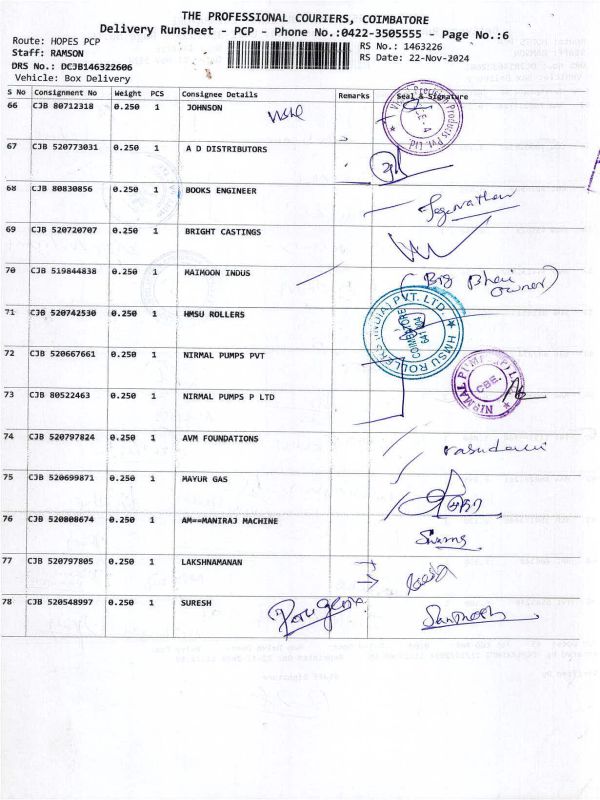 THE PROFESSIONAL COURIERS, COIMBATORE
Delivery Runsheet - PCP - Phone No.:0422-3505555 - Page No.:6
Route: HOPES PCP
Staff: RAMSON
DRS No.: DCJB146322606
Vehicle: Box Delivery
RS No.: 1463226
RS Date: 22-Nov-2024
S No Consignment No Weight PCS Consignee Details Remarks Seal & Signature
66 CJB 80712318 0.250 1 JOHNSON
67 CJB 520773031 0.250 1 A D DISTRIBUTORS
68 CJB 80830856 0.250 1 BOOKS ENGINEER Jeganathan
69 CJB 520720707 0.250 1 BRIGHT CASTINGS
70 CJB 519844838 0.250 1 MAIMOON INDUS (Big Bhai owner)
71 CJB 520742530 0.250 1 HMSU ROLLERS
HMSU ROLLERS (INDIA) PVT. LTD.
COIMBATORE
641 004
72 CJB 520667661 0.250 1 NIRMAL PUMPS PVT
73 CJB 80522463 0.250 1 NIRMAL PUMPS P LTD
CBE.
74 CJB 520797824 0.250 1 AVM FOUNDATIONS
75 CJB 520699871 0.250 1 MAYUR GAS
76 CJB 520808674 0.250 1 AM==MANIRAJ MACHINE
77 CJB 520797805 0.250 1 LAKSHNAMANAN
78 CJB 520548997 0.250 1 SURESH Santhosh